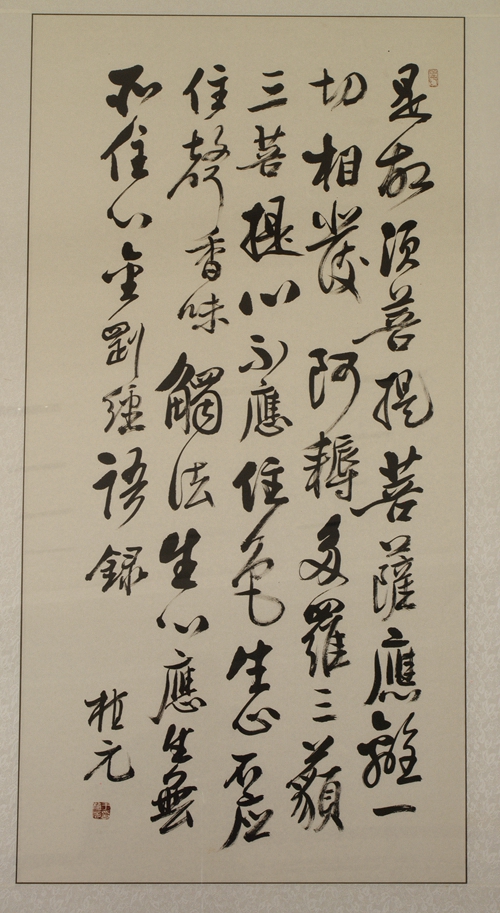 是故須菩提菩薩應離一
切相發阿耨多羅三藐
三菩提心不應住色生心不应
住聲香味觸法生心應生無
所住心金剛經語録
植元